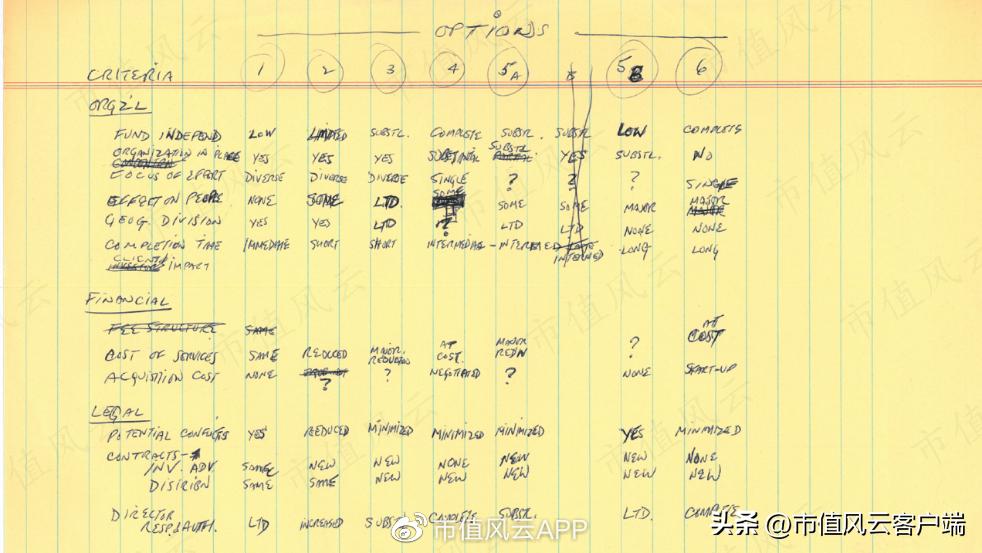 OPTIONS
CRITERIA 1 2 3 4 5A 5B 6
ORG'L
FUND INDEPEND LOW LIMITED SUBSTL. COMPLETE SUBSTL. SUBSTL LOW COMPLETE
ORGANIZATION IN PLACE YES YES YES SUBSTANTIAL SUBSTL YES SUBSTL. NO
FOCUS OF EFFORT DIVERSE DIVERSE DIVERSE SINGLE ? ? ? SINGLE
EFFECT ON PEOPLE NONE SOME LTD SOME SOME SOME MAJOR MAJOR
GEOG. DIVISION YES YES LTD ? LTD LTD NONE NONE
COMPLETION TIME IMMEDIATE SHORT SHORT INTERMEDIATE - INTERMED INTERMED LONG LONG
CLIENT IMPACT
FINANCIAL
FEE STRUCTURE SAME
COST OF SERVICES SAME REDUCED MAJOR REDUCTION AT COST. MAJOR REDN ? AT COST
ACQUISITION COST NONE ? ? NEGOTIATED ? NONE START-UP
LEGAL
POTENTIAL CONFLICTS YES REDUCED MINIMIZED MINIMIZED MINIMIZED YES MINIMIZED
CONTRACTS-
INV. ADV. SAME NEW NEW NONE NEW NEW NONE
DISTRIBN SAME SAME NEW NEW NEW NEW NEW
DIRECTOR
RESP/AUTH. LTD INCREASED SUBSTL COMPLETE SUBSTL. LTD. COMPLETE
市值风云APP
头条 @市值风云客户端
市值风云